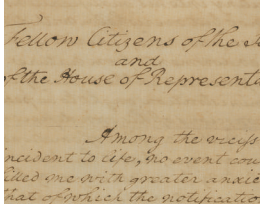 Fellow Citizens of the S
and
of the House of Representa
Among the viciss
incident to life, no event cou
filled me with greater anxie
that of which the notificatio